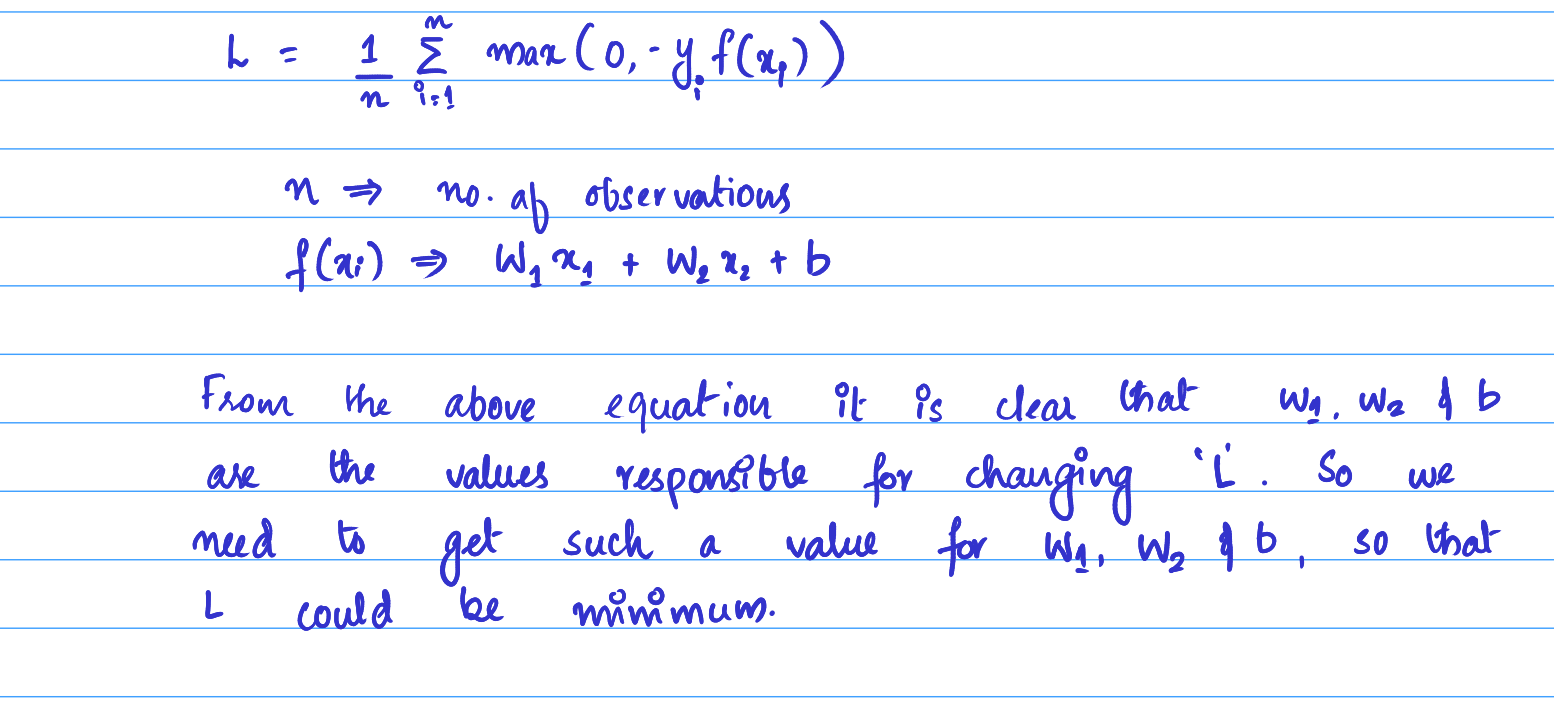 L = 1/n Σ_{i=1}^{n} max(0, -y_i f(x_i))
n ⇒ no. of observations
f(x_i) ⇒ W_1 x_1 + W_2 x_2 + b
From the above equation it is clear that W_1, W_2 & b
are the values responsible for changing 'L'. So we
need to get such a value for W_1, W_2 & b, so that
L could be minimum.